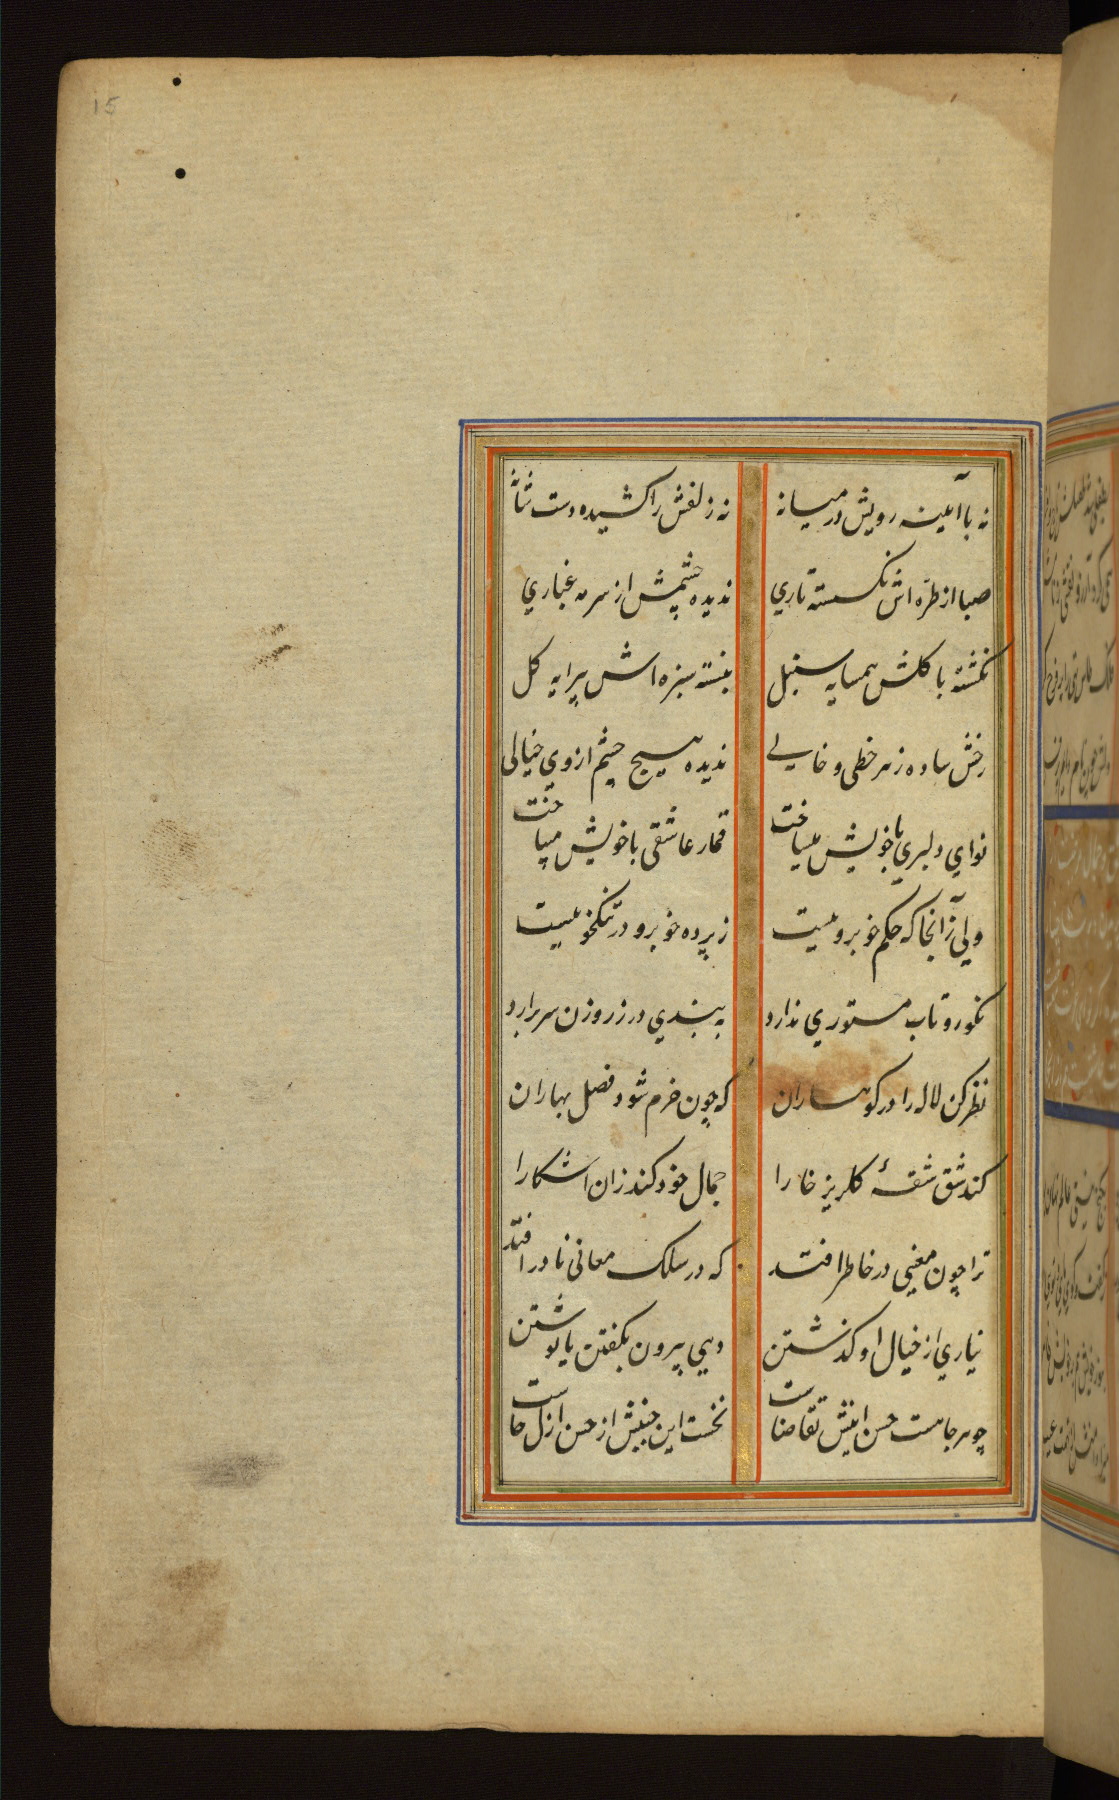 15
نه با آینه رویش در میانه
نه زلفش را کشیده دست شانه
صبا از طره اش نکسسته تاری
ندیده چشمش از سرمه غباری
نکشته با کلش همسایه سنبل
نبسته سبزه اش پیرایه کل
رخش ساده ز هر خطی و خالی
ندیده هیچ چشم از وی خیالی
نوای دلبری با خویش میساخت
قمار عاشقی با خویش میباخت
ولی زآنجا که حکم خوبروییست
ز پرده خوبرو در تنکخوییست
نکورو تاب مستوری ندارد
به بندی در ز روزن سر برارد
نظر کن لاله را در کوهساران
که چون خرم شود فصل بهاران
کند شق شقهٔ کلریز خارا
جمال خود کند زان اشکارا
ترا چون معنیی در خاطر افتد
که در سلک معانی نادر افتد
نیاری از خیال او کذشتن
دهی بیرون بکفتن یا نوشتن
چو هر جا هست حسن اینش تقاضاست
نخست این جنبش از حسن ازل خاست